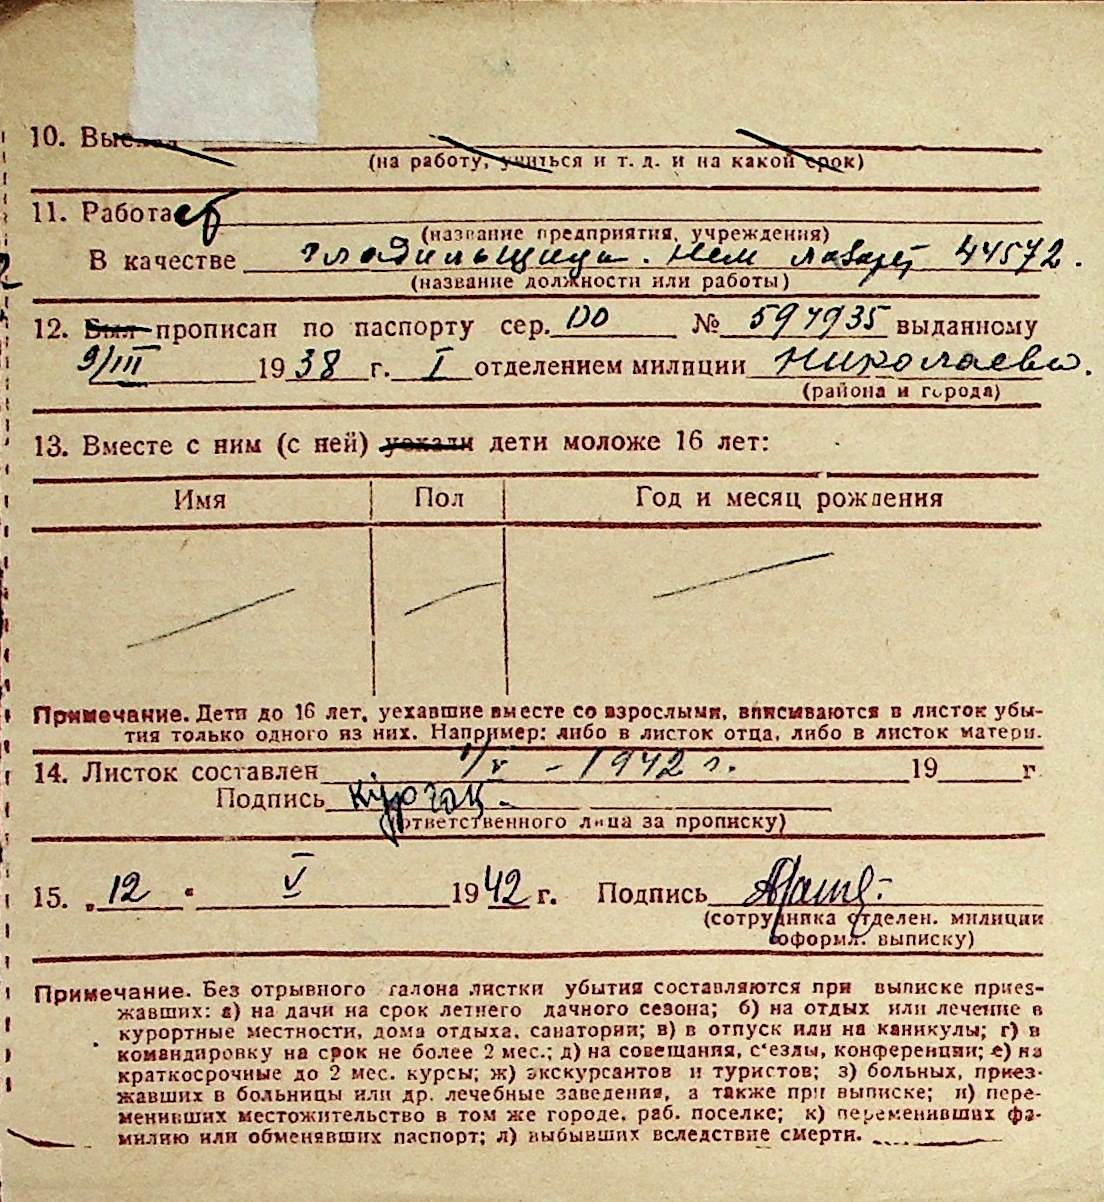 10. Выехал
(на работу, учиться и т. д. и на какой срок)
11. Работает
(название предприятия, учреждения)
В качестве гладильщица. Нем лазарет 44572.
(название должности или работы)
12. Был прописан по паспорту сер. DO № 597935 выданному
9/III 1938 г. I отделением милиции Николаева.
(района и города)
13. Вместе с ним (с ней) уехали дети моложе 16 лет:
Имя Пол Год и месяц рождения
Примечание. Дети до 16 лет, уехавшие вместе со взрослыми, вписываются в листок убы-
тия только одного из них. Например: либо в листок отца, либо в листок матери.
14. Листок составлен 1/V - 1942 г. 19 г
Подпись
(ответственного лица за прописку)
15. „12" V 1942 г. Подпись
(сотрудника отделен. милиции
оформл. выписку)
Примечание. Без отрывного талона листки убытия составляются при выписке приез-
жавших: а) на дачи на срок летнего дачного сезона; б) на отдых или лечение в
курортные местности, дома отдыха, санатории; в) в отпуск или на каникулы; г) в
командировку на срок не более 2 мес.; д) на совещания, с'езды, конференции; е) на
краткосрочные до 2 мес. курсы; ж) экскурсантов и туристов; з) больных, приез-
жавших в больницы или др. лечебные заведения, а также при выписке; и) пере-
менивших местожительство в том же городе, раб. поселке; к) переменивших фа-
милию или обменявших паспорт; л) выбывших вследствие смерти.